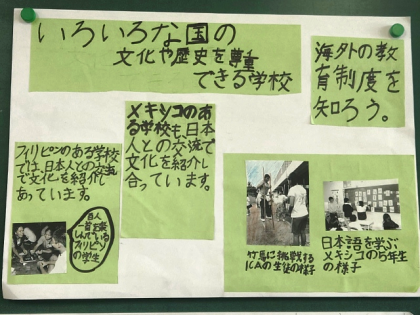 いろいろな国の
文化や歴史を尊重
できる学校
海外の教
育制度を
知ろう。
メキシコのあ
る学校も日本
人との交流で
文化を紹介し
合っています。
フィリピンのある学校
では、日本人との交流
で文化を紹介し
あっています。
百人
一首を楽
しんでいる
フィリピン
の学生
竹馬に挑戦する
ICAの生徒の様子
日本語を学ぶ
メキシコの5年生
の様子